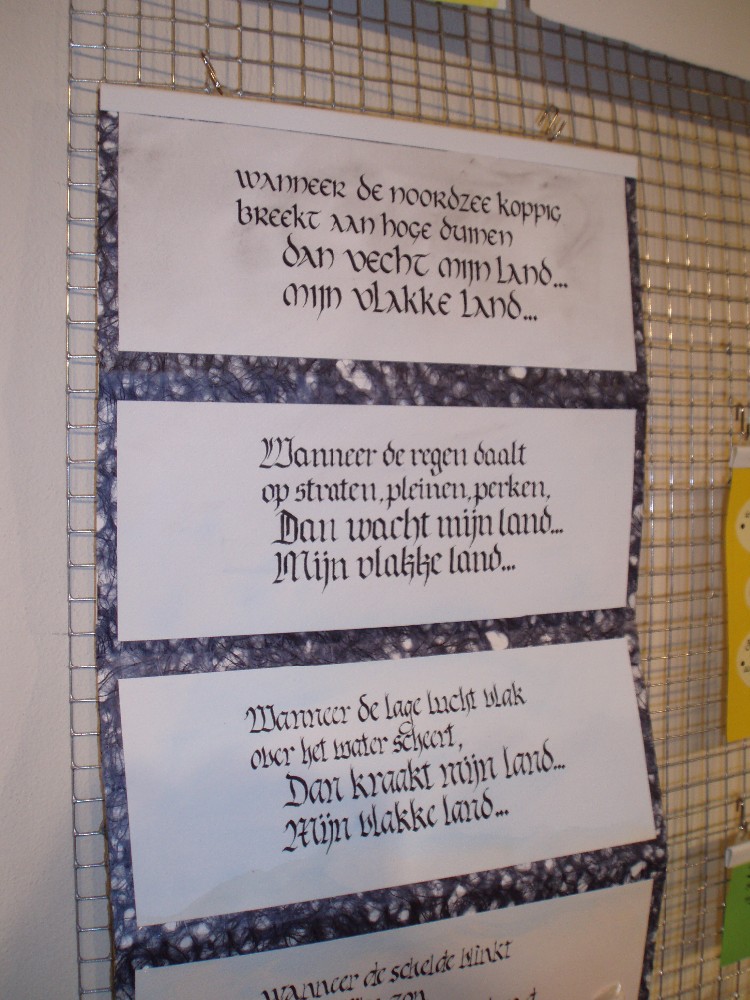 wanneer de noordzee koppig
breekt aan hoge duinen
dan vecht mijn land...
mijn vlakke land...
Wanneer de regen daalt
op straten, pleinen, perken,
Dan wacht mijn land...
Mijn vlakke land...
Wanneer de lage lucht vlak
over het water scheert,
Dan kraakt mijn land...
Mijn vlakke land...
wanneer de schelde blinkt
zon